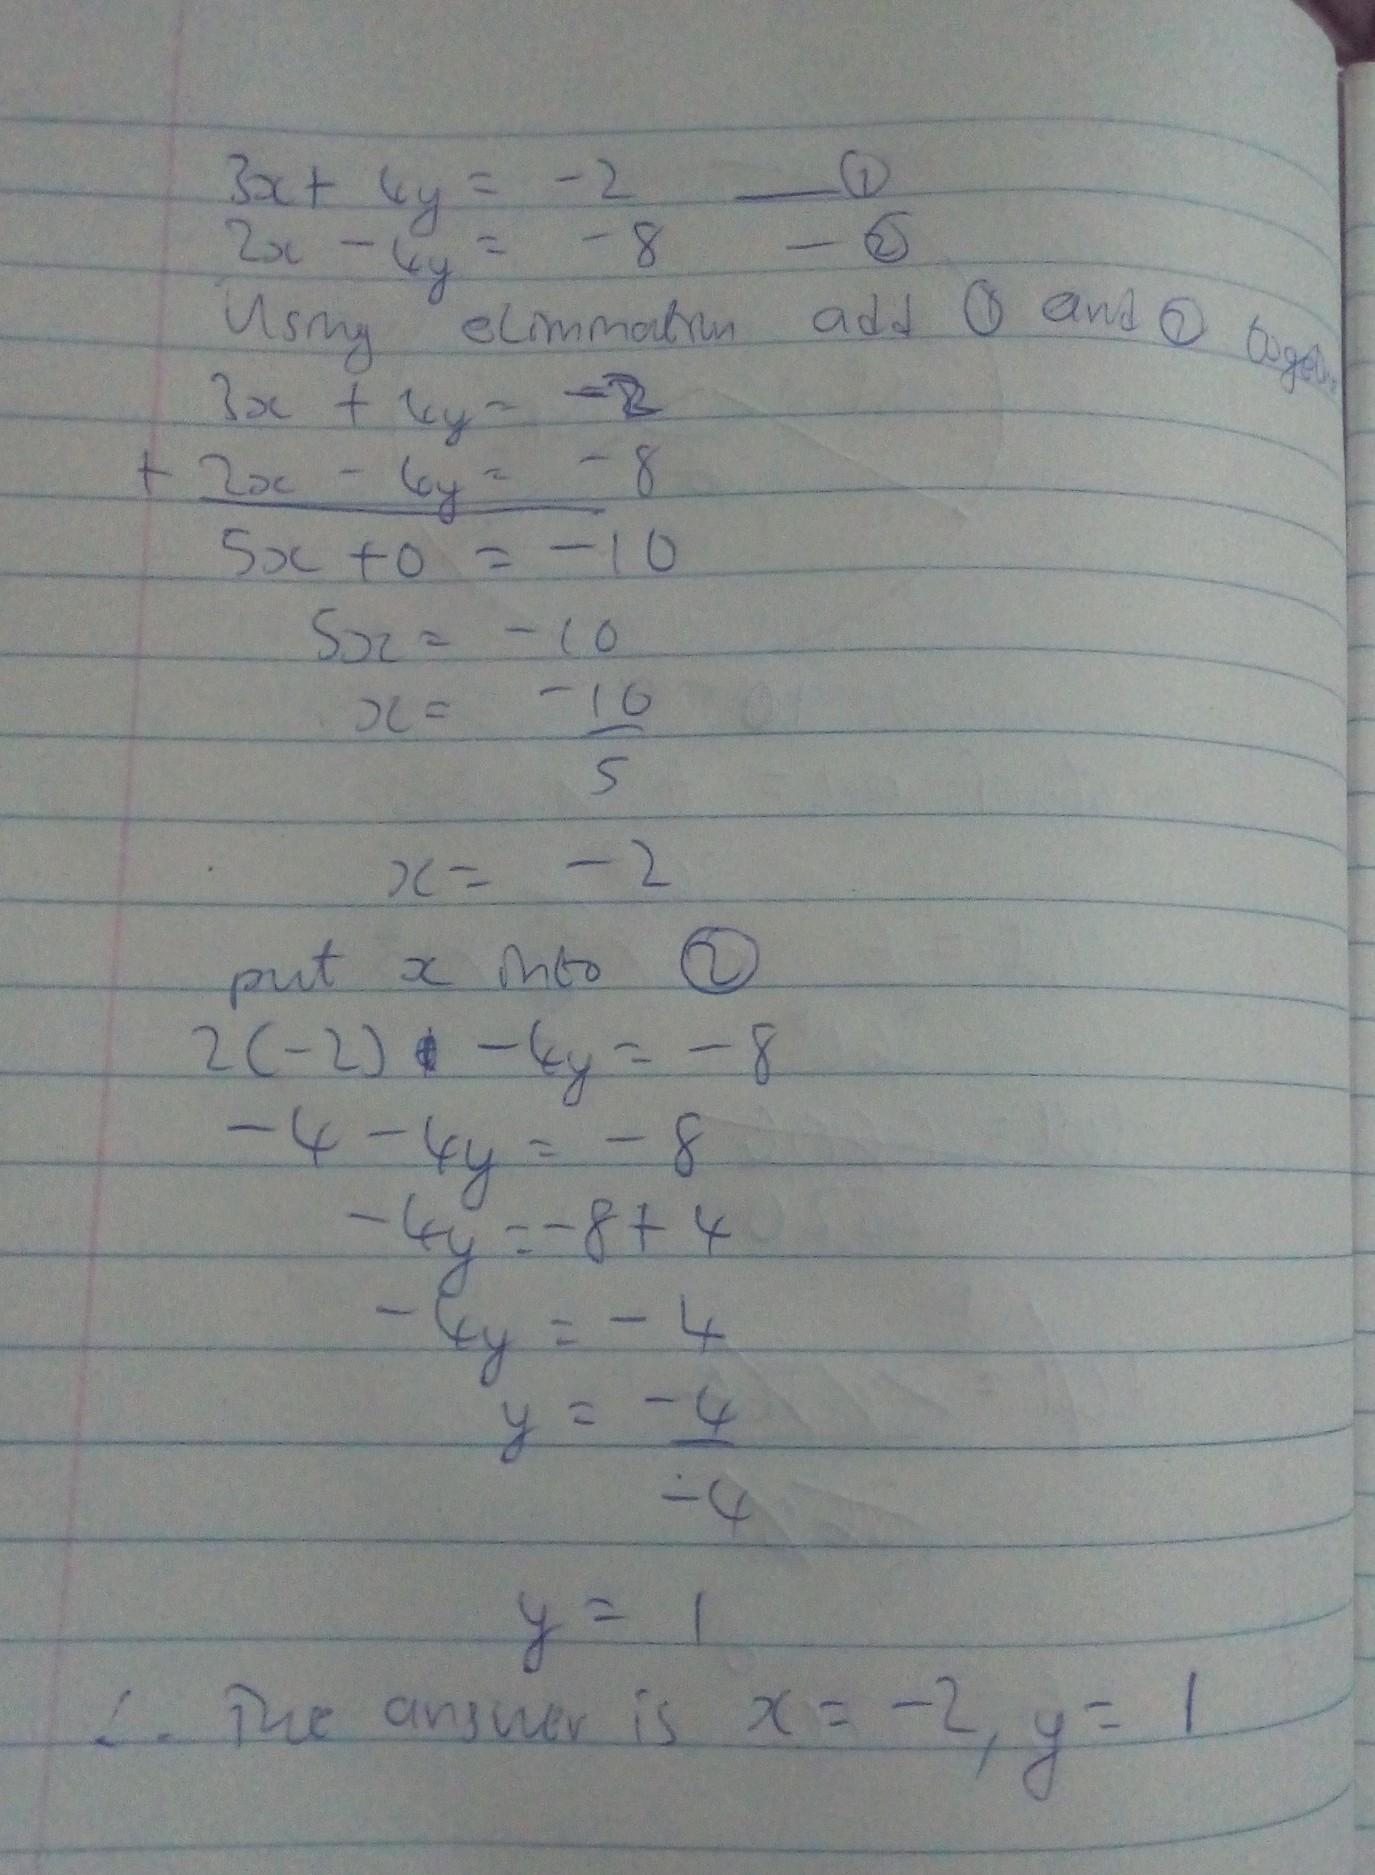 3x + 4y = -2 —— ①
2x - 4y = -8 — ②
Using elimination add ① and ② together
3x + 4y = -2
+ 2x - 4y = -8
5x + 0 = -10
5x = -10
x = -10
5
x = -2
put x into ②
2(-2) - 4y = -8
-4 - 4y = -8
-4y = -8 + 4
-4y = -4
y = -4
-4
y = 1
∴ The answer is x = -2, y = 1